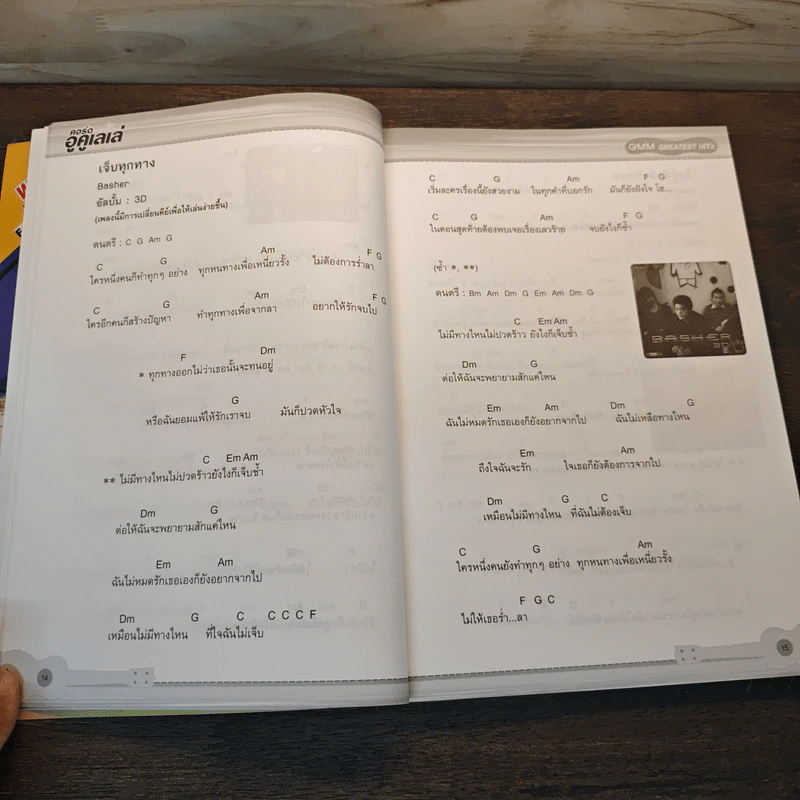 คอร์ด
อูคูเลเล่
เจ็บทุกทาง
Basher
อัลบั้ม : 3D
(เพลงนี้มีการเปลี่ยนคีย์เพื่อให้เล่นง่ายขึ้น)
ดนตรี : C G Am G
C G Am F G
ใครหนึ่งคนก็ทำทุกๆ อย่าง ทุกหนทางเพื่อเหนี่ยวรั้ง ไม่ต้องการร่ำลา
C G Am F G
ใครอีกคนก็สร้างปัญหา ทำทุกทางเพื่อจากลา อยากให้รักจบไป
F Dm
* ทุกทางออกไม่ว่าเธอนั้นจะทนอยู่
G
หรือฉันยอมแพ้ให้รักเราจบ มันก็ปวดหัวใจ
C Em Am
** ไม่มีทางไหนไม่ปวดร้าวยังไงก็เจ็บช้ำ
Dm G
ต่อให้ฉันจะพยายามสักแค่ไหน
Em Am
ฉันไม่หมดรักเธอเองก็ยังอยากจากไป
Dm G C C C C F
เหมือนไม่มีทางไหน ที่ใจฉันไม่เจ็บ
14
GMM GREATEST HITs
C G Am F G
เริ่มละครเรื่องนี้ยังสวยงาม ในทุกคำที่บอกรัก มันก็ยังฝังใจ โฮ...
C G Am F G
ในตอนสุดท้ายต้องพบเจอเรื่องเลวร้าย จบยังไงก็ช้ำ
(ซ้ำ *, **)
ดนตรี : Bm Am Dm G Em Am Dm G
C Em Am
ไม่มีทางไหนไม่ปวดร้าว ยังไงก็เจ็บช้ำ
Dm G
ต่อให้ฉันจะพยายามสักแค่ไหน
Em Am Dm G
ฉันไม่หมดรักเธอเองก็ยังอยากจากไป ฉันไม่เหลือทางไหน
Em Am
ถึงใจฉันจะรัก ใจเธอก็ยังต้องการจากไป
Dm G C
เหมือนไม่มีทางไหน ที่ฉันไม่ต้องเจ็บ
C G Am
ใครหนึ่งคนยังทำทุกๆ อย่าง ทุกหนทางเพื่อเหนี่ยวรั้ง
F G C
ไม่ให้เธอร่ำ...ลา
BASHER
3D
15